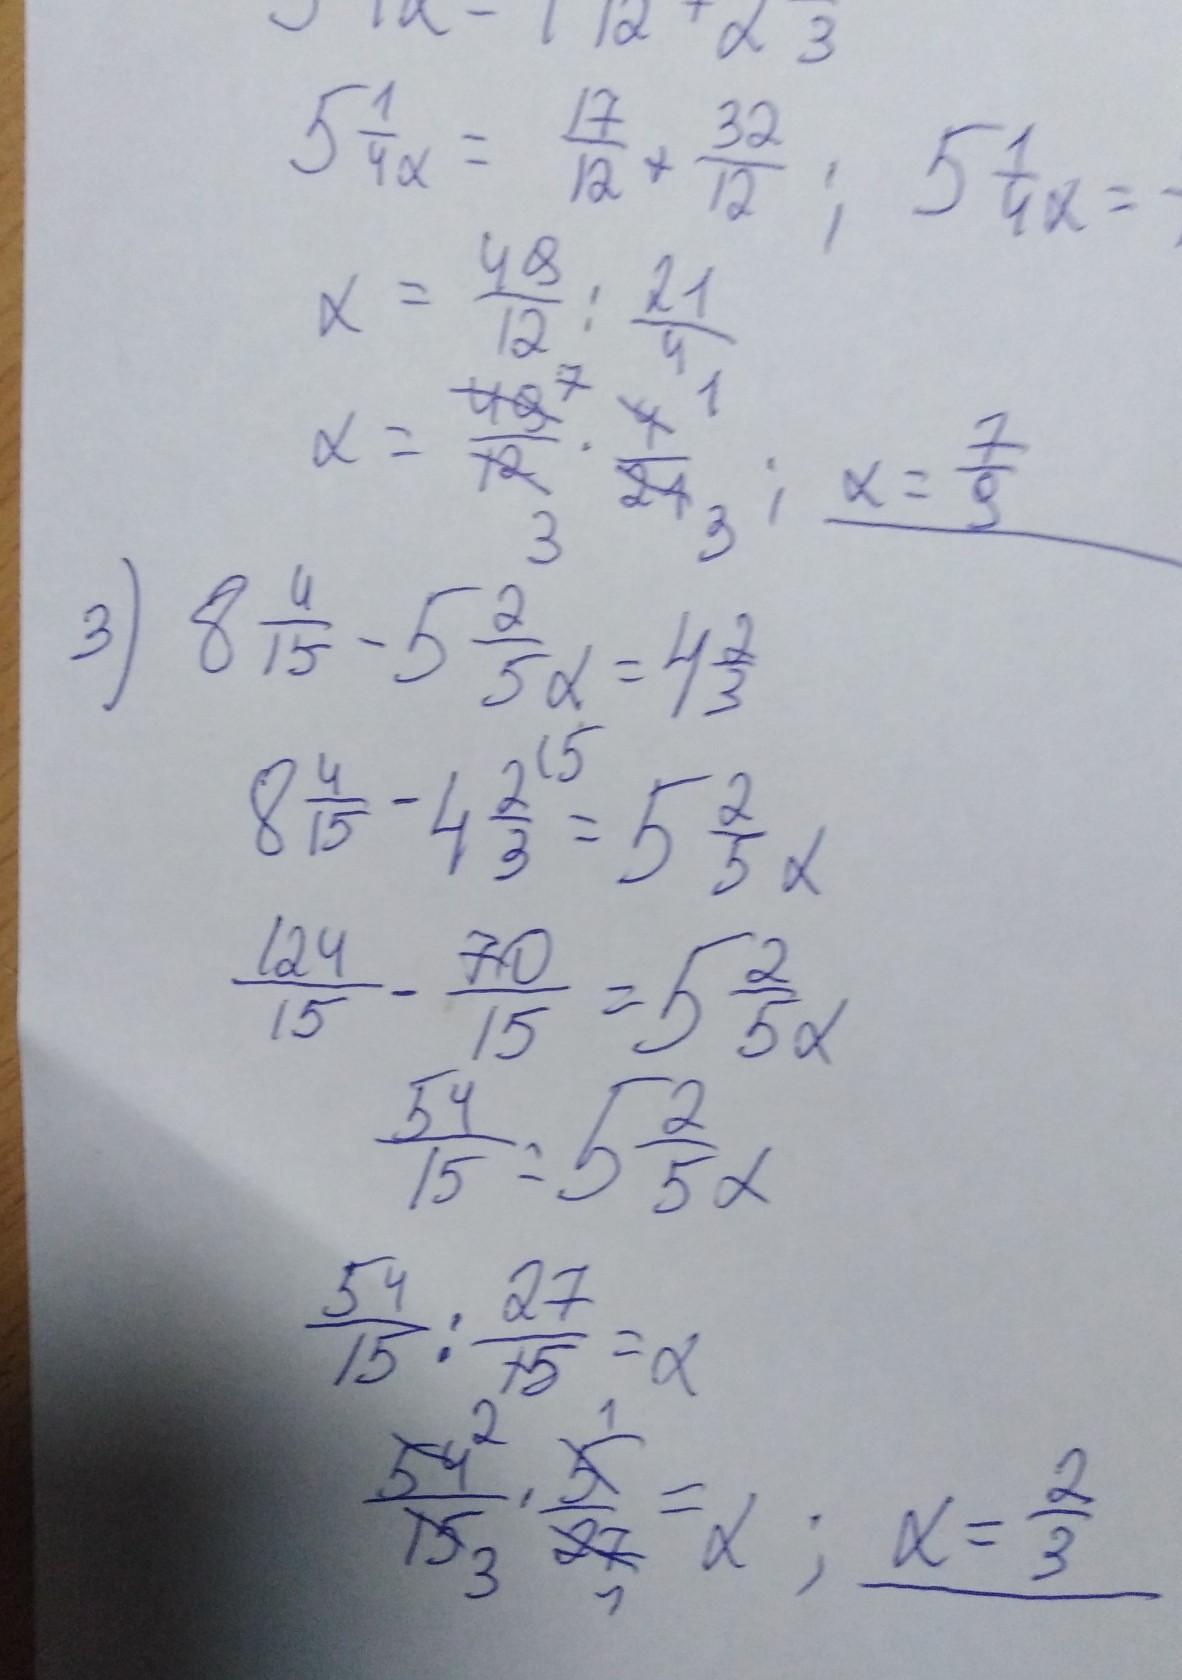 5 1/4 x = 17/12 + 32/12 ; 5 1/4 x =
x = 49/12 : 21/4
x = 49/12 7 3 · 4/21 1 3 ; x = 7/9
3) 8 4/15 - 5 2/5 x = 4 2/3
8 4/15 - 4 2/3 (5 = 5 2/5 x
124/15 - 70/15 = 5 2/5 x
54/15 = 5 2/5 x
54/15 : 27/15 = x
54/15 2 3 · 5/27 1 1 = x ; x = 2/3